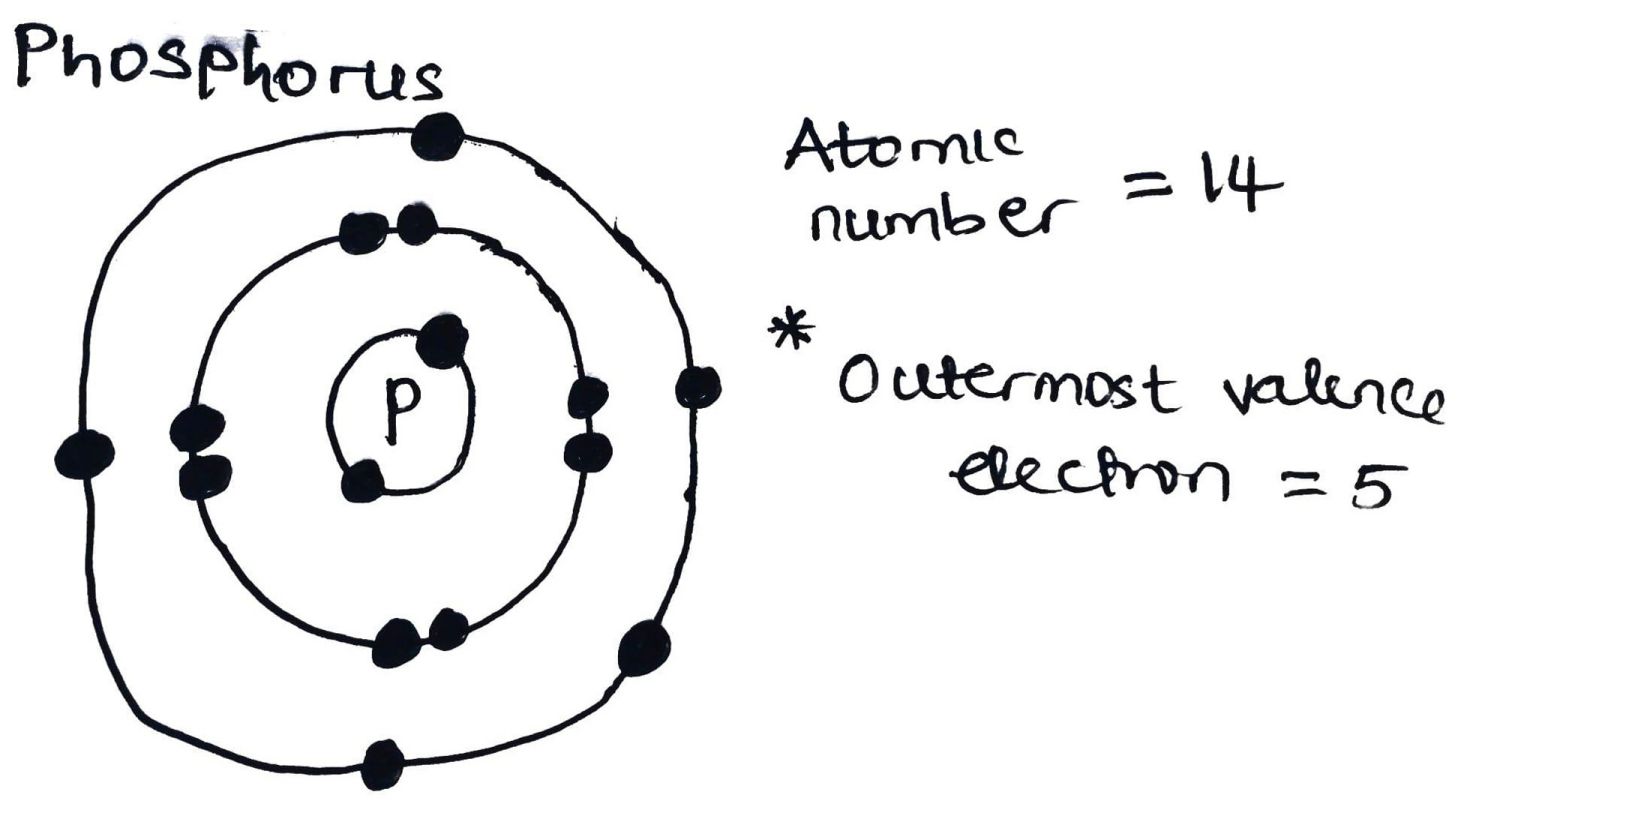 Phosphorus
P
Atomic
number = 14
*
Outermost valence
electron = 5